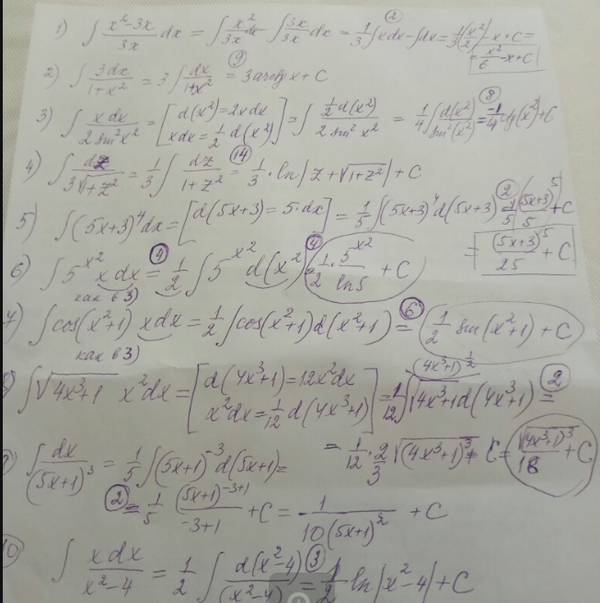 1) ∫ (x²-3x)/(3x) dx = ∫ x²/(3x) dx - ∫ 3x/(3x) dx = 1/3 ∫xdx - ∫dx =② 1/3 (x²/2) - x + C =
= x²/6 - x + C
2) ∫ 3dx/(1+x²) = 3 ∫ dx/(1+x²) =⑨ 3 arctg x + C
3) ∫ xdx/(2sin²x²) = [d(x²) = 2xdx xdx = 1/2 d(x²)] = ∫ (1/2 d(x²))/(2sin²x²) = 1/4 ∫ d(x²)/sin²(x²) =⑧ -1/4 ctg(x²) + C
4) ∫ dz/(3√(1+z²)) = 1/3 ∫ dz/(1+z²) =⑭ 1/3 · ln|z + √(1+z²)| + C
5) ∫(5x+3)⁴dx = [d(5x+3) = 5·dx] = 1/5 ∫(5x+3)⁴ d(5x+3) =② 1/5 (5x+3)⁵/5 + C
= (5x+3)⁵/25 + C
6) ∫ 5^(x²) xdx =④ 1/2 ∫ 5^(x²) d(x²) =④ 1/2 · 5^(x²)/ln5 + C
как в 3)
7) ∫cos(x²+1) xdx = 1/2 ∫cos(x²+1) d(x²+1) =⑥ 1/2 sin(x²+1) + C
как в 3)
(4x³+1)^(1/2)
∫√(4x³+1) x²dx = [d(4x³+1) = 12x²dx x²dx = 1/12 d(4x³+1)] = 1/12 ∫√(4x³+1) d(4x³+1) =②
= 1/12 · 2/3 √(4x³+1)³ + C = √(4x³+1)³/18 + C
∫ dx/(5x+1)³ = 1/5 ∫(5x+1)⁻³ d(5x+1) =
②= 1/5 (5x+1)^(-3+1)/(-3+1) + C = 1/(10(5x+1)²) + C
10 ∫ xdx/(x²-4) = 1/2 ∫ d(x²-4)/(x²-4) =③ 1/2 ln|x²-4| + C